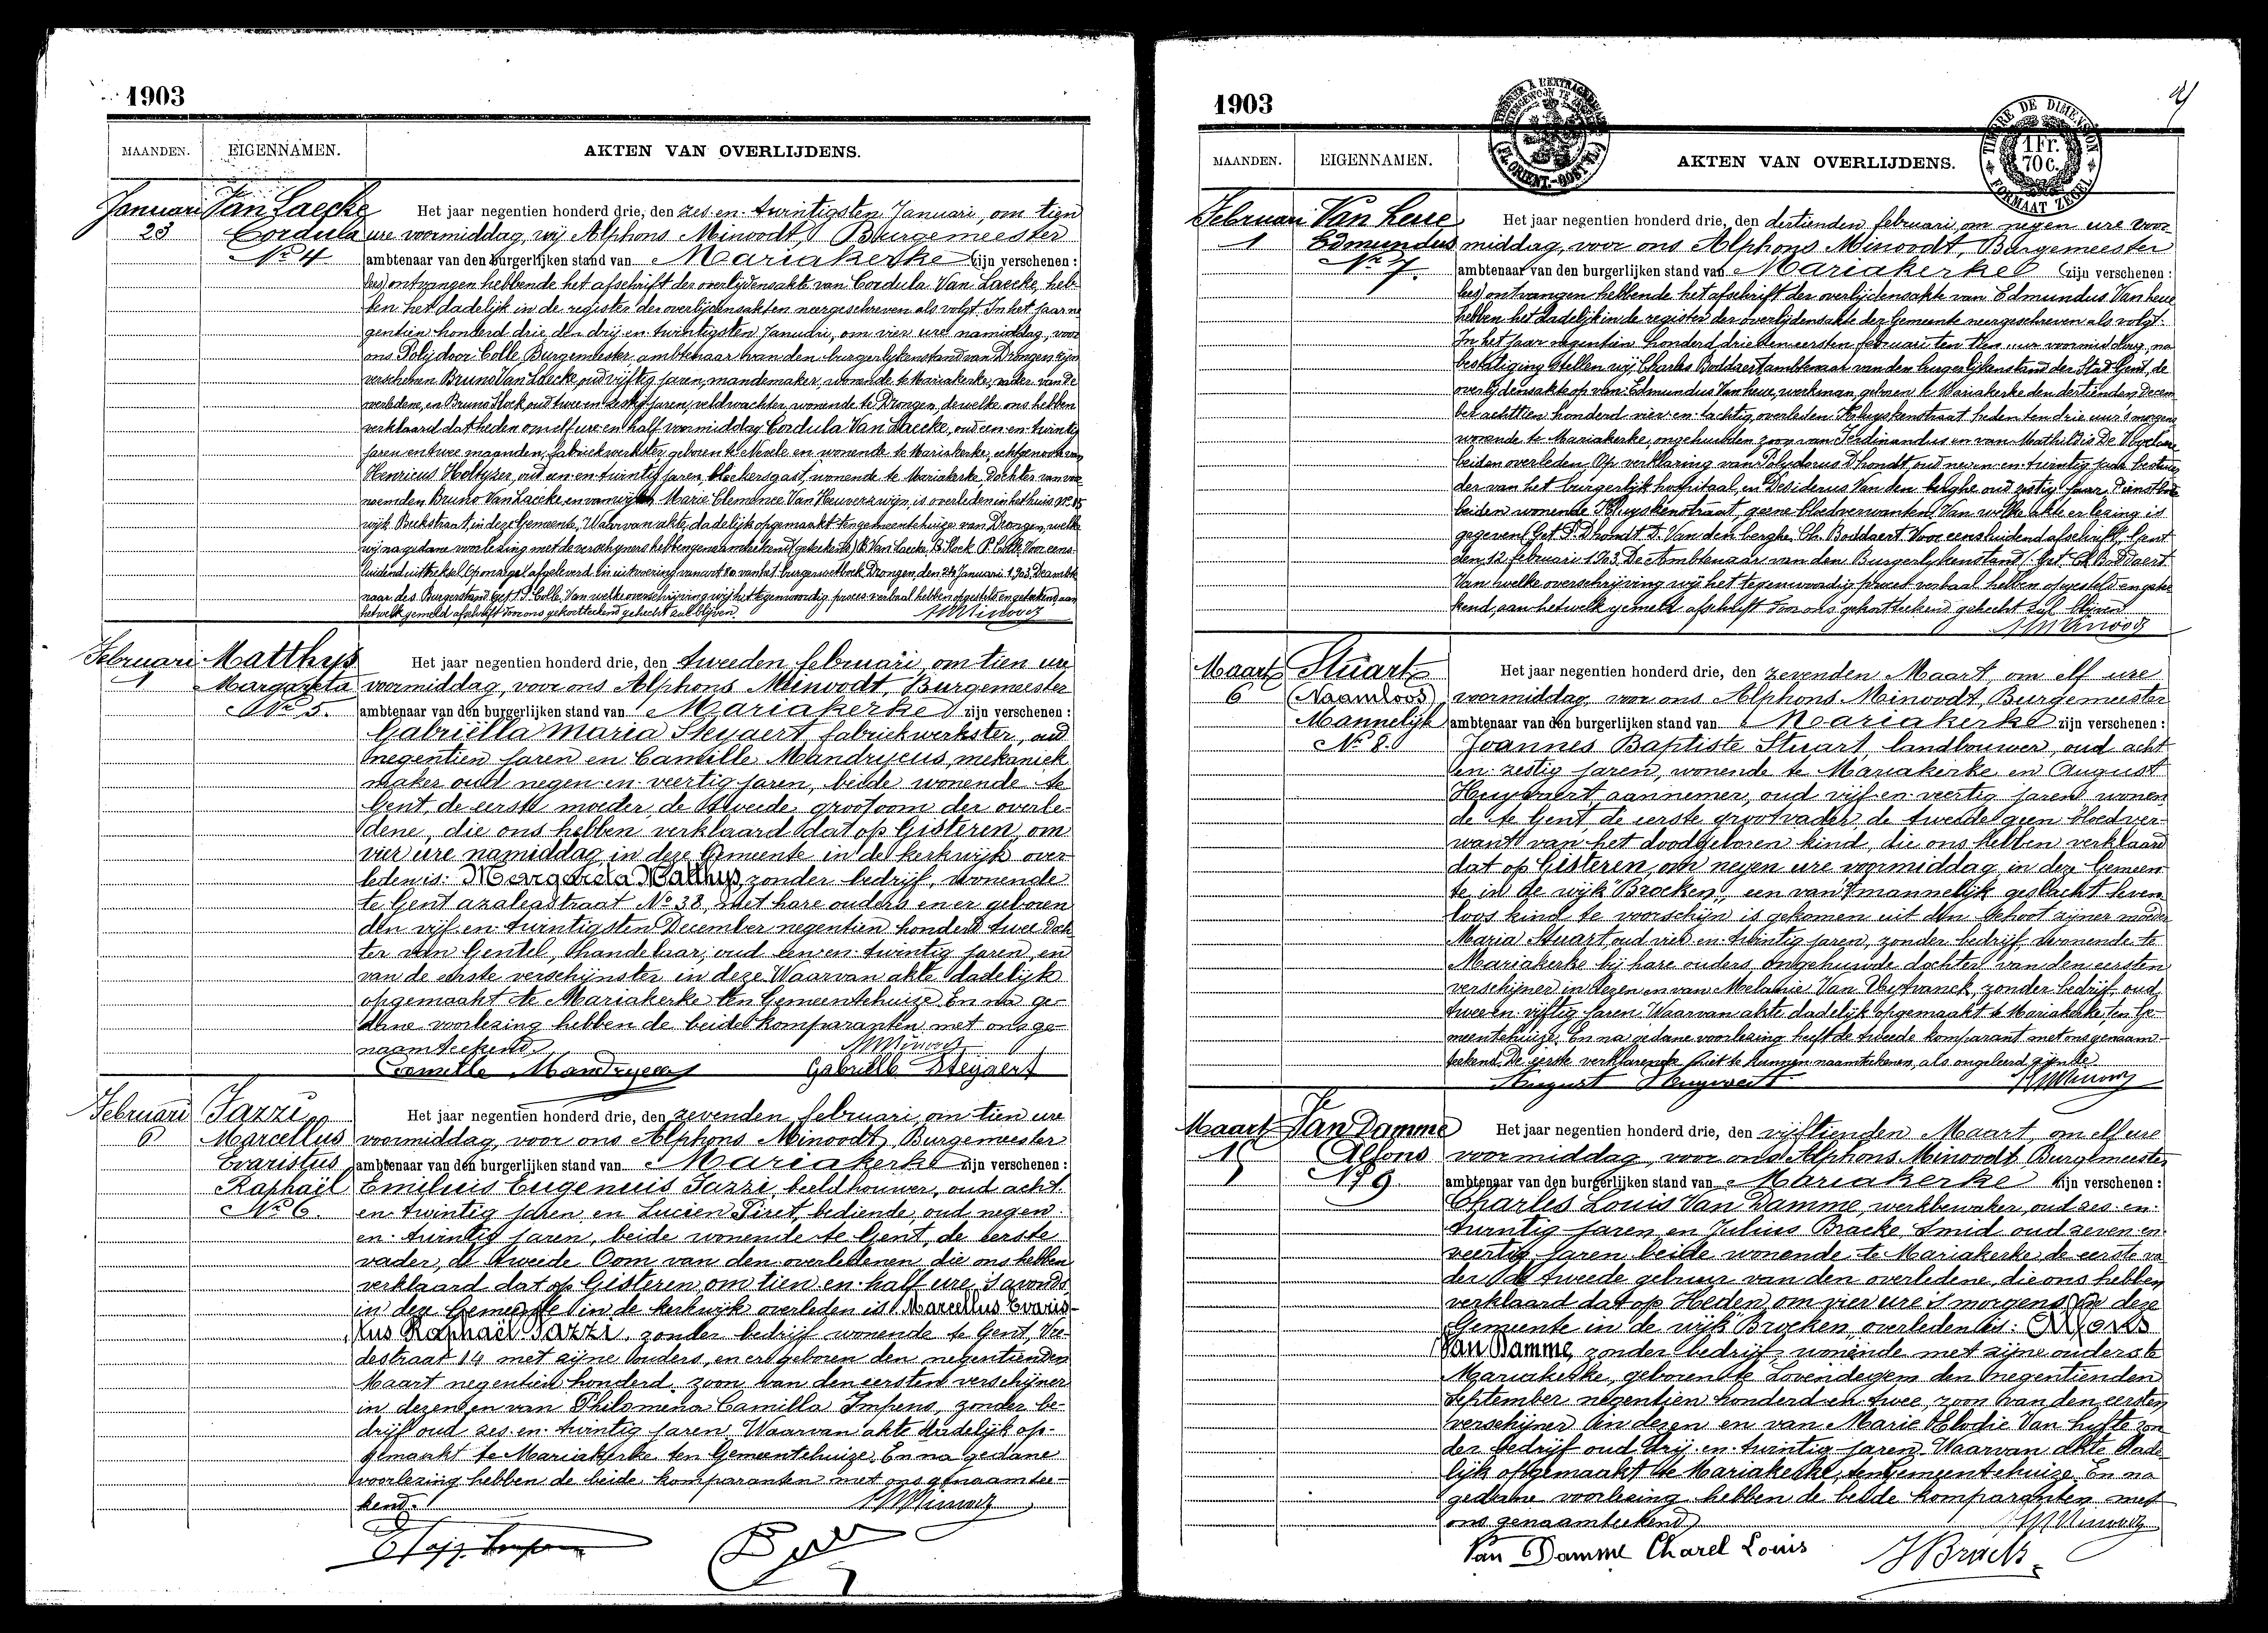 1903
MAANDEN. EIGENNAMEN. AKTEN VAN OVERLIJDENS.
Januari Van Laecke Het jaar negentien honderd drie, den zes en twintigsten Januari, om tien
23 Cordula ure voormiddag, wij Alphons Minoodt, Burgemeester
No 4 ambtenaar van den burgerlijken stand van Mariakerke zijn verschenen:
ontvangen hebbende het afschrift der overlijdensakte van Cordula Van Laecke, heb-
ben het dadelijk in de register der overlijdensakten neergeschreven als volgt. In het jaar ne
gentien honderd drie den drij en twintigsten Januari, om vier ure namiddag, voor
ons Polijdoor Colle Burgemeester ambtenaar van den burgerlijkenstand van Drongen zijn
verschenen Bruno Van Laecke oud vijftig jaren, mandemaker, wonende te Mariakerke, vader van de
overledene, en Bruno Stock, oud twee en jaren, veldwachter, wonende te Drongen, dewelke ons hebben
verklaard dat heden om elf ure en half voormiddag Cordula Van Laecke, oud een en twintig
jaren en twee maanden, fabriekwerkster geboren te Nevele en wonende te Mariakerke, echtgenoote van
Henricus oud een en twintig jaren, bleekersgast, wonende te Mariakerke, dochter van voor
noemden Bruno Van Laecke en van wijlen Marie Clemence Van is overleden in het huis No
wijk Beekstraat in deze Gemeente. Waarvan akte, dadelijk opgemaakt ten gemeentehuize van Drongen, welke
wij na gedane voorlezing met de verschijners hebben genaamteekend (geteekend) B. Van Laecke, B. Stock P. Colle. Voor eens
luidend uittreksel Op zegel afgeleverd in uitvoering van art 80 van het burgerwetboek Drongen, den 24 Januari 1903 De ambte
naar des Burgerstand Get P. Colle. Van welke overschrijving wij het tegenwoordig proces verbaal hebben opgesteld en geteekend, aan
hetwelk gemeld afschrift door ons gekortteekend gehecht zal blijven. AMinoodt
Februari Matthys Het jaar negentien honderd drie, den tweeden februari, om tien ure
1 Margareta voormiddag, voor ons Alphons Minoodt, Burgemeester
No 5. ambtenaar van den burgerlijken stand van Mariakerke zijn verschenen:
Gabriëlla Maria Steyaert fabriekwerkster, oud
negentien jaren en Camille Mandrycus, mekaniek
maker oud negen en veertig jaren, beide wonende te
Gent, de eerste moeder, de tweede grootoom der overle-
dene, die ons hebben verklaard dat op Gisteren, om
vier ure namiddag, in deze Gemeente in de kerkwijk over-
leden is: Margareta Matthys, zonder bedrijf, wonende
te Gent azaleastraat No 38, met hare ouders en er geboren
den vijf en twintigsten December negentien honderd twee doch
ter van Gentel, handelaar, oud een en twintig jaren, en
van de eerste verschijnster in deze. Waarvan akte dadelijk
opgemaakt te Mariakerke ten Gemeentehuize. En na ge-
dane voorlezing hebben de beide komparanten met ons ge-
naamteekend. AMinoodt
Camille Mandrycus Gabrielle Steyaert
Februari Fazzi Het jaar negentien honderd drie, den zevenden februari om tien ure
6 Marcellus voormiddag, voor ons Alphons Minoodt, Burgemeester
Evaristus ambtenaar van den burgerlijken stand van Mariakerke zijn verschenen:
Raphaël Emilius Eugenius Fazzi, beeldhouwer, oud acht
No 6. en twintig jaren en Lucien Piret, bediende, oud negen
en twintig jaren, beide wonende te Gent, de eerste
vader, de tweede Oom van den overledenen, die ons hebben
verklaard dat op Gisteren, om tien en half ure 's avonds
in deze Gemeente in de kerkwijk overleden is Marcellus Evaris-
tus Raphaël Fazzi, zonder bedrijf wonende te Gent, Vre-
destraat 14 met zijne ouders, en er geboren den negentienden
Maart negentien honderd, zoon van den eersten verschijner
in dezen en van Philomena Camilla Impens, zonder be-
drijf oud zes en twintig jaren. Waarvan akte dadelijk op-
gemaakt te Mariakerke ten Gemeentehuize. En na gedane
voorlezing hebben de beide komparanten met ons genaamtee-
kend. AMinoodt
1903
MAANDEN. EIGENNAMEN. AKTEN VAN OVERLIJDENS.
TIMBRE DE DIMENSION 1 Fr. 70 c. FORMAAT ZEGEL
(FL. ORIENT.-OOST VL.)
Februari Van heue Het jaar negentien honderd drie, den dertienden februari, om negen ure voor
1 Edmundus middag, voor ons Alphons Minoodt, Burgemeester
No 7. ambtenaar van den burgerlijken stand van Mariakerke zijn verschenen:
ontvangen hebbende het afschrift der overlijdensakte van Edmundus Vanheue
hebben het dadelijk in de register der overlijdensakte der Gemeente neergeschreven als volgt.
In het jaar negentien honderd drie den eersten februari ten tien ure voormiddag, na
bestatiging stellen wij Charles Boddaert ambtenaar van den burgerlijkenstand der Stad Gent, de
overlijdensakte op van: Edmundus Vanheue, werkman, geboren te Mariakerke den dertienden Decem
ber achttien honderd vier en tachtig, overleden Kluyskenstraat heden ten drie uur 's morgens
wonende te Mariakerke, ongehuwden zoon van Ferdinandus en van Mathildis De
beiden overleden. Op verklaring van Polydorus Dhondt, oud negen en twintig jaar bestuur
der van het burgerlijk hospitaal, en Desiderus Van den berghe oud zestig jaar, Dienstbode
beiden wonende Kluyskenstraat, geene bloedverwanten. Van welke akte er lezing is
gegeven (Get P. Dhondt D. Van den berghe, Ch. Boddaert. Voor eensluidend afschrift, Gent
den 12 februari 1903 De Ambtenaar van den Burgerlykenstand (Get Ch Boddaert
Van welke overschrijving wij het tegenwoordig proces verbaal hebben opgesteld en getee
kend, aan hetwelk gemeld afschrift door ons gekortteekend gehecht zal blijven
AMinoodt
Maart Stuart Het jaar negentien honderd drie, den zevenden Maart, om elf ure
6 (Naamloos) voormiddag, voor ons Alphons Minoodt, Burgemeester
Mannelijk ambtenaar van den burgerlijken stand van Mariakerke zijn verschenen:
No 8. Joannes Baptiste Stuart, landbouwer, oud acht
en zestig jaren, wonende te Mariakerke en August
Huywaert, aannemer, oud vijf en veertig jaren wonen
de te Gent, de eerste grootvader, de tweede geen bloedver-
want van het doodgeboren kind, die ons hebben verklaard
dat op Gisteren, om negen ure voormiddag, in deze Gemeen
te in de wijk Broeken, een van't mannelijk geslacht leven
loos kind te voorschijn is gekomen uit den schoot zijner moeder
Maria Stuart, oud vier en twintig jaren, zonder bedrijf, wonende te
Mariakerke bij hare ouders, ongehuwde dochter van den eersten
verschijner in dezen en van Melanie Van zonder bedrijf, oud
twee en vijftig jaren. Waarvan akte dadelijk opgemaakt te Mariakerke, ten Ge-
meentehuize. En na gedane voorlezing heeft de tweede komparant met ons genaam-
teekend. De eerste verklarende niet te kunnen naamteekenen, als ongeleerd zijnde.
August Huywaert AMinoodt
Maart Van Damme Het jaar negentien honderd drie, den vijftienden Maart, om elf ure
15 Alfons voormiddag, voor ons Alphons Minoodt, Burgemeester
No 9 ambtenaar van den burgerlijken stand van Mariakerke zijn verschenen:
Charles Louis Van Damme, werkbewaker, oud zes en
twintig jaren en Julius Bracke, smid oud zeven en
veertig jaren beide wonende te Mariakerke, de eerste va
der de tweede gebuur van den overledene, die ons hebben
verklaard dat op Heden, om vier ure 's morgens in deze
Gemeente in de wijk Broeken, overleden is: Alfons
Van Damme, zonder bedrijf, wonende met zijne ouders te
Mariakerke, geboren te Lovendegem den negentienden
September negentien honderd en twee, zoon van den eersten
verschijner in dezen en van Marie Elodie Van hufte zon
der bedrijf oud drij en twintig jaren. Waarvan akte dade
lijk opgemaakt te Mariakerke, ten Gemeentehuize. En na
gedane voorlezing hebben de beide komparanten met
ons genaamteekend. AMinoodt
Van Damme Charel Louis J Bracke